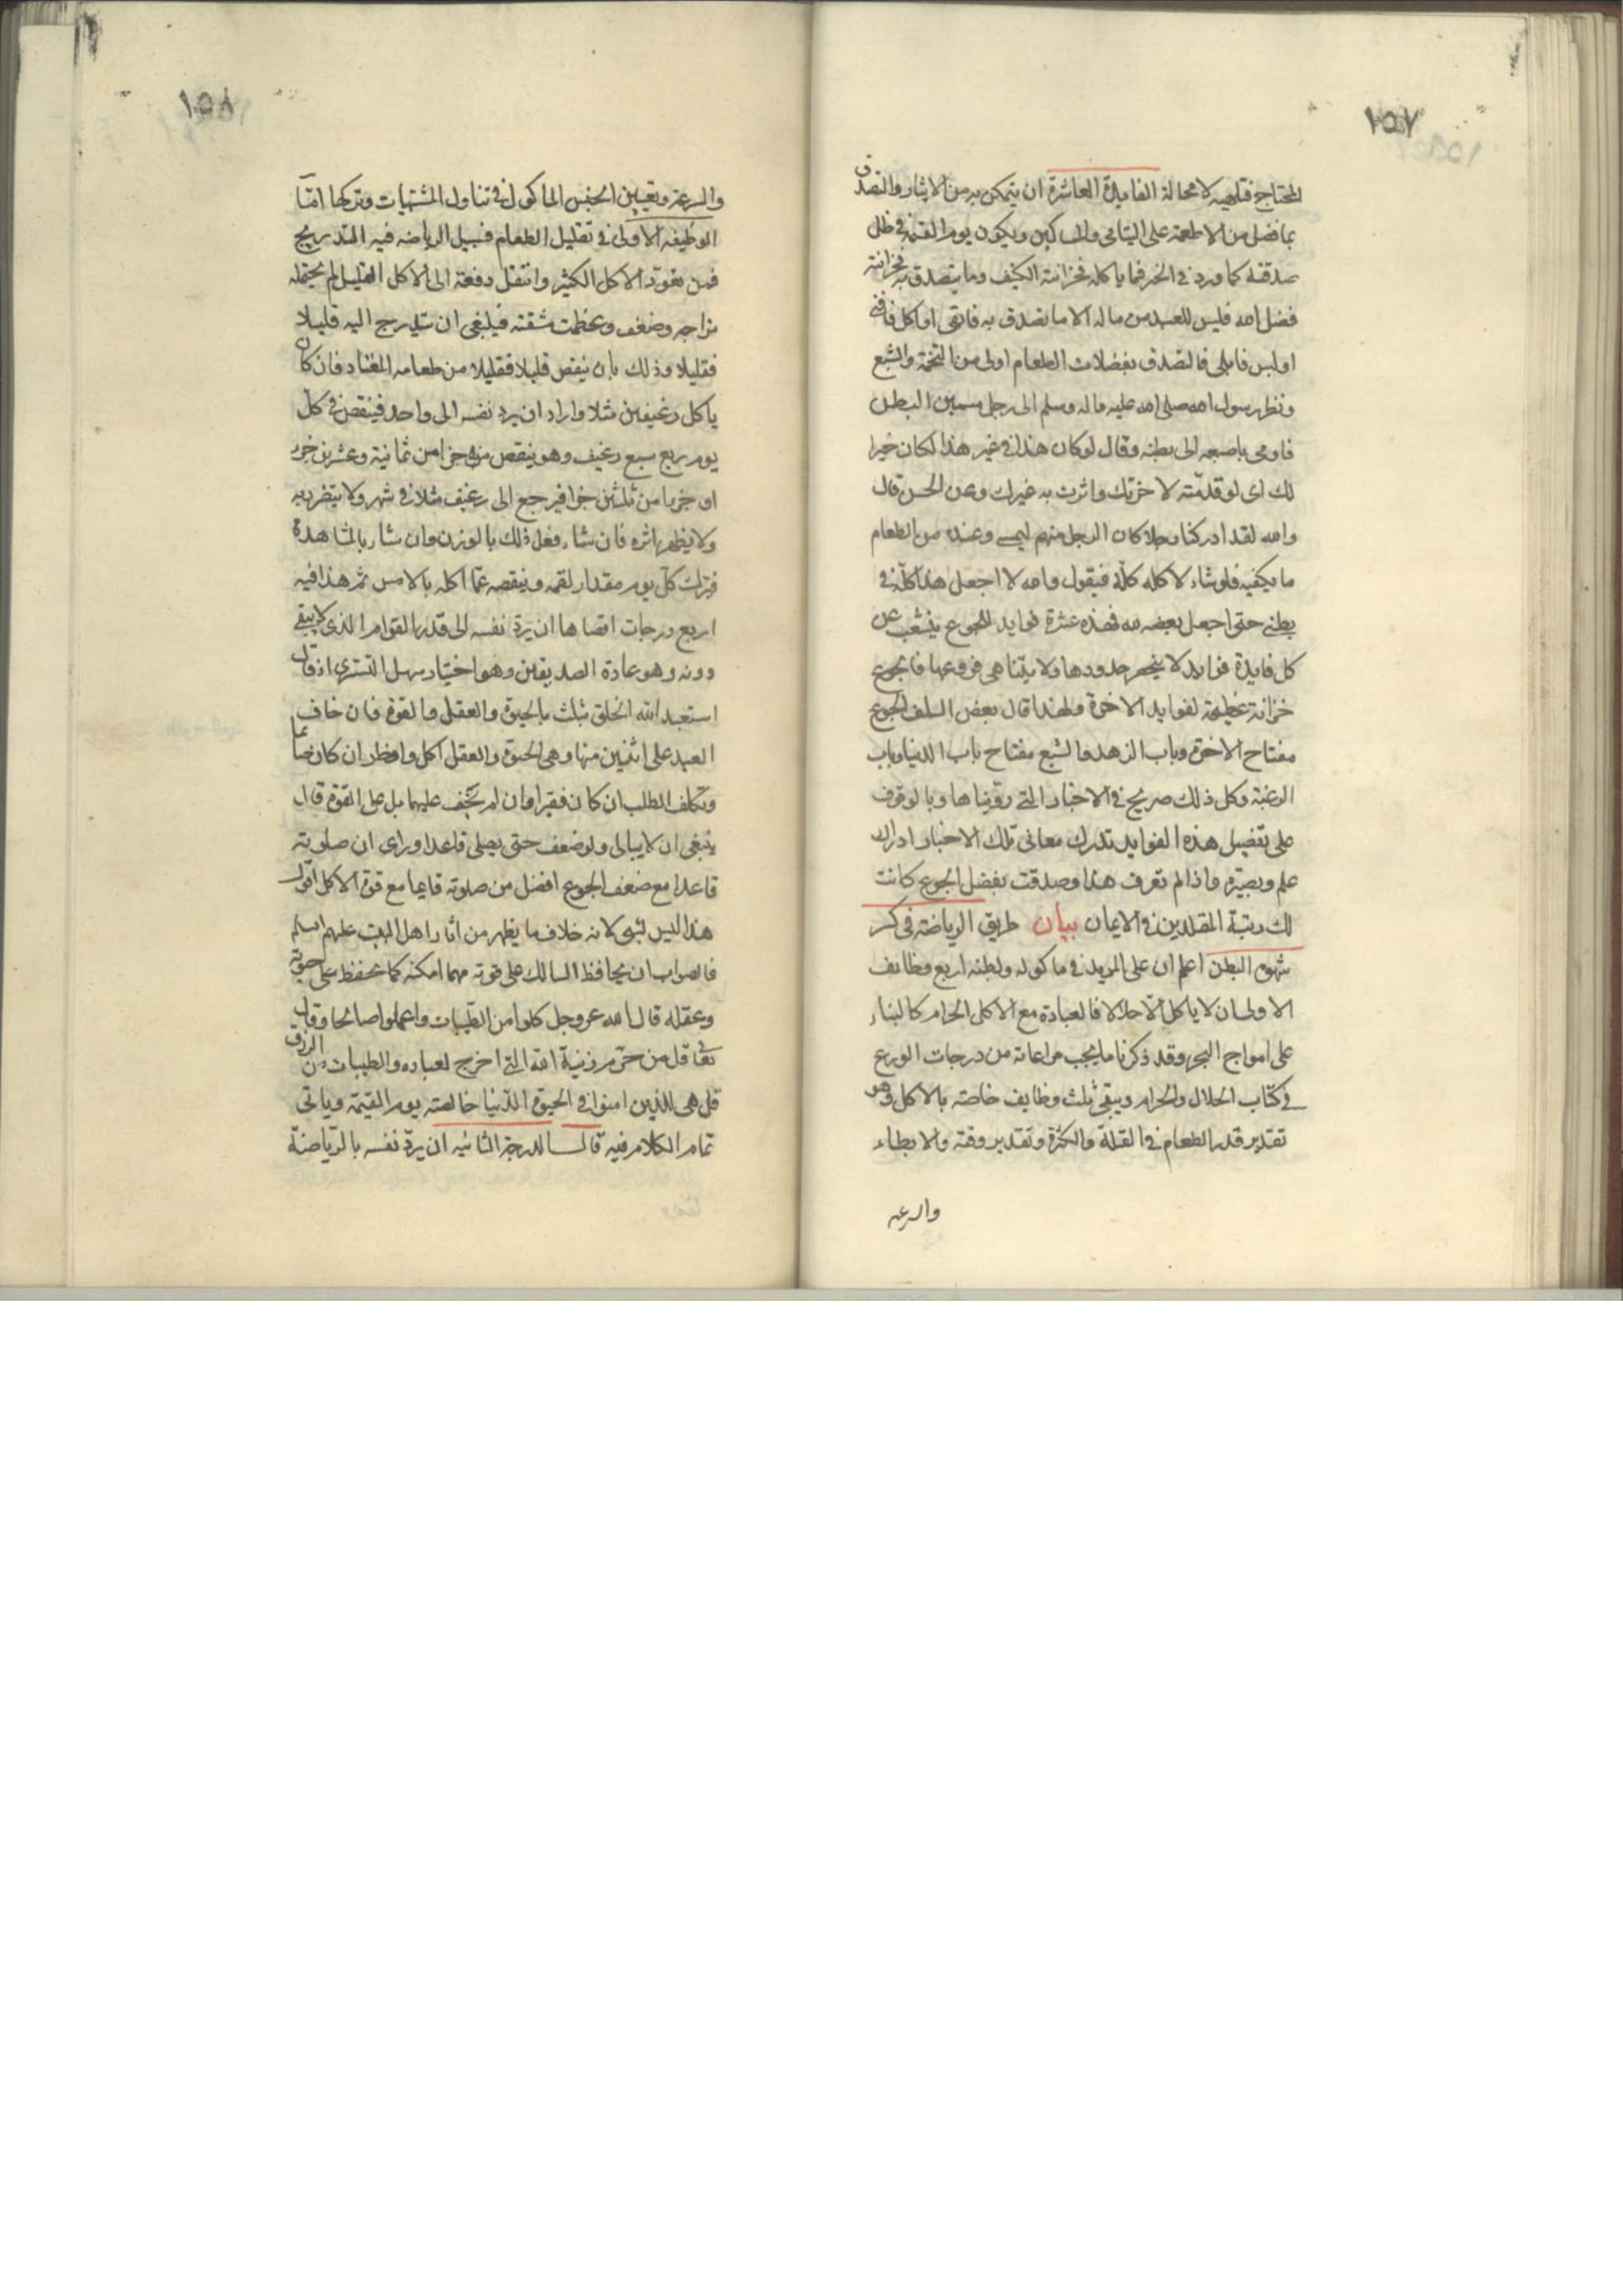 ١٥٧
المحتاج فتلهيه لا محالة الفايدة العاشرة ان يتمكن به من الايثار والتصدق
بما فضل من الاطعمة على اليتامى والمساكين ويكون يوم القيمة في ظل
صدقته كما ورد في الخبر فما ياكله فخزانته الكنيف وما يتصدق به فخزانته
فضل الله فليس للعبد من ماله الا ما تصدق به فابقى او اكل فافنى
او لبس فابلى فالتصدق بفضلات الطعام اولى من التخمة والشبع
ونظر رسول الله صلى الله عليه واله وسلم الى رجل سمين البطن
فاومى باصبعه الى بطنه وقال لو كان هذا في غير هذا لكان خيرا
لك اى لو قدمته لاخرتك واثرت به غيرك وعن الحسن قال
والله لقد ادركنا رجلا كان الرجل منهم ليمسى وعنده من الطعام
ما يكفيه فلو شاء لاكله كله فيقول والله لا اجعل هذا كله في
بطنى حتى اجعل بعضه لله فهذه عشرة فوايد للجوع ينشعب عن
كل فايدة فوايد لا ينحصر حدودها ولا يتناهى فروعها فالجوع
خزانة عظيمة لفوايد الاخرة ولهذا قال بعض السلف الجوع
مفتاح الاخرة وباب الزهد والشبع مفتاح باب الدنيا وباب
الرغبة وكل ذلك صريح في الاخبار التي رويناها وبالوقوف
على تفصيل هذه الفوايد تدرك معانى تلك الاخبار ادراك
علم وبصيرة واذا لم تعرف هذا وصدقت بفضل الجوع كانت
لك رتبة المقلدين في الايمان بيان طريق الرياضة في كسر
شهوة البطن اعلم ان على المريد في ماكوله وبطنه اربع وظايف
الاولى ان لا ياكل الا حلالا فالعبادة مع الاكل الحرام كالبناء
على امواج البحر وقد ذكرنا ما يجب مراعاته من درجات الورع
في كتاب الحلال والحرام ويبقى ثلث وظايف خاصة بالاكل وهو
تقدير قدر الطعام في القلة والكثرة وتقدير وقته والابطاء
والسرعة
١٥٨
والسرعة وتعيين الجنس الماكول في تناول المشتهيات وتركها امّا
الوظيفه الاولى في تقليل الطعام فسبيل الرياضه فيه التدريج
فمن تعوّد الاكل الكثير وانتقل دفعة الى الاكل القليل لم يحتمله
مزاجه وضعف وعظمت مشقته فينبغى ان يتدرج اليه قليلا
فقليلا وذلك بان ينقص قليلا فقليلا من طعامه المعتاد فان كان
ياكل رغيفين مثلا واراد ان يرد نفسه الى واحد فينقص في كلّ
يوم ربع سبع رغيف وهو ينقص منه جزا من ثمانية وعشرين جزء
او جزءا من ثلثين جزا فيرجع الى رغيف مثلا في شهر ولا يتضرر به
ولا يظهر اثره فان شاء فعل ذلك بالوزن وان شاء بالمشاهدة
فيترك كلّ يوم مقدار لقمه وينقصه عمّا اكله بالامس ثم هذا فيه
اربع درجات اقصاها ان يردّ نفسه الى قدر القوام الذى لا يبقى
دونه وهو عادة الصديقين وهو اختيار سهل التسترى اذ قال
استعبد الله الخلق بثلث بالحيوة والعقل والقوة فان خاف
العبد على اثنين منها وهى الحيوة والعقل اكل وافطر ان كان صائما
وتكلف الطلب ان كان فقيرا وان لم يخف عليهما بل على القوة قال
ينبغى ان لا يبالى ولو ضعف حتى يصلى قاعدا وراى ان صلوته
قاعدا مع ضعف الجوع افضل من صلوته قايما مع قوة الاكل اقول
هذا ليس بشىء لانه خلاف ما يظهر من اثار اهل البيت عليهم السلم
فالصواب ان يحافظ السالك على قوته مهما امكنه كما يحفظ على حيوته
وعقله قال الله عز وجل كلوا من الطيبات واعملوا صالحا وقال
تعالى قل من حرم زينة الله التي اخرج لعباده والطيبات من الرزق
قل هى للذين امنوا في الحيوة الدّنيا خالصة يوم القيمة وياتى
تمام الكلام فيه قال الدرجة الثانيه ان يردّ نفسه بالرّياضة